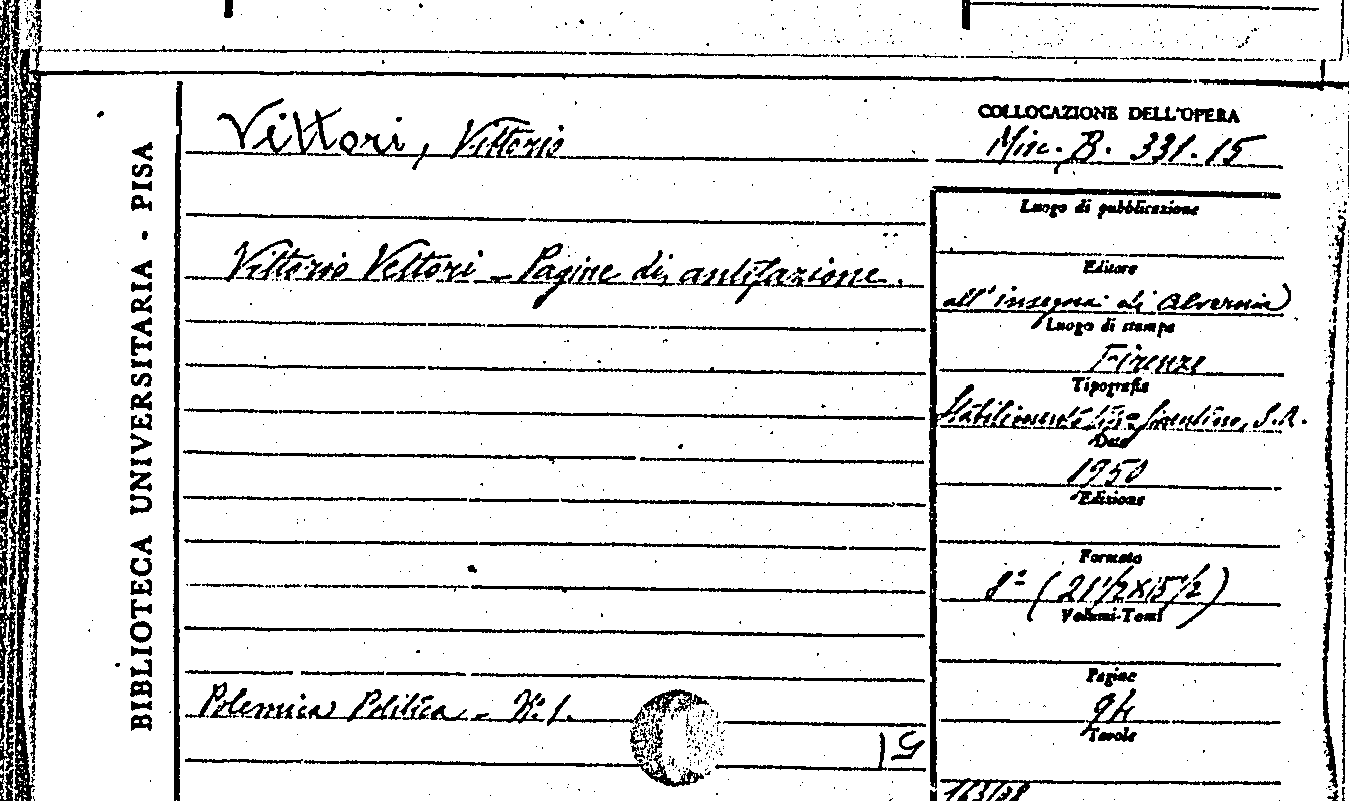 BIBLIOTECA UNIVERSITARIA - PISA
Vittori, Vittorio
COLLOCAZIONE DELL'OPERA
Misc. B. 331.15
Luogo di pubblicazione
Vittorio Vettori - Pagine di antifazione.
Editore
all'insegna di Alvernia
Luogo di stampa
Firenze
Tipografia
Stabilimento tip. fiorentino, S.A.
Data
1950
Edizione
Formato
8° (21 1/2 x 15 1/2)
Volumi-Tomi
Pagine
94
Tavole
Polemica Politica - N. 1.
15